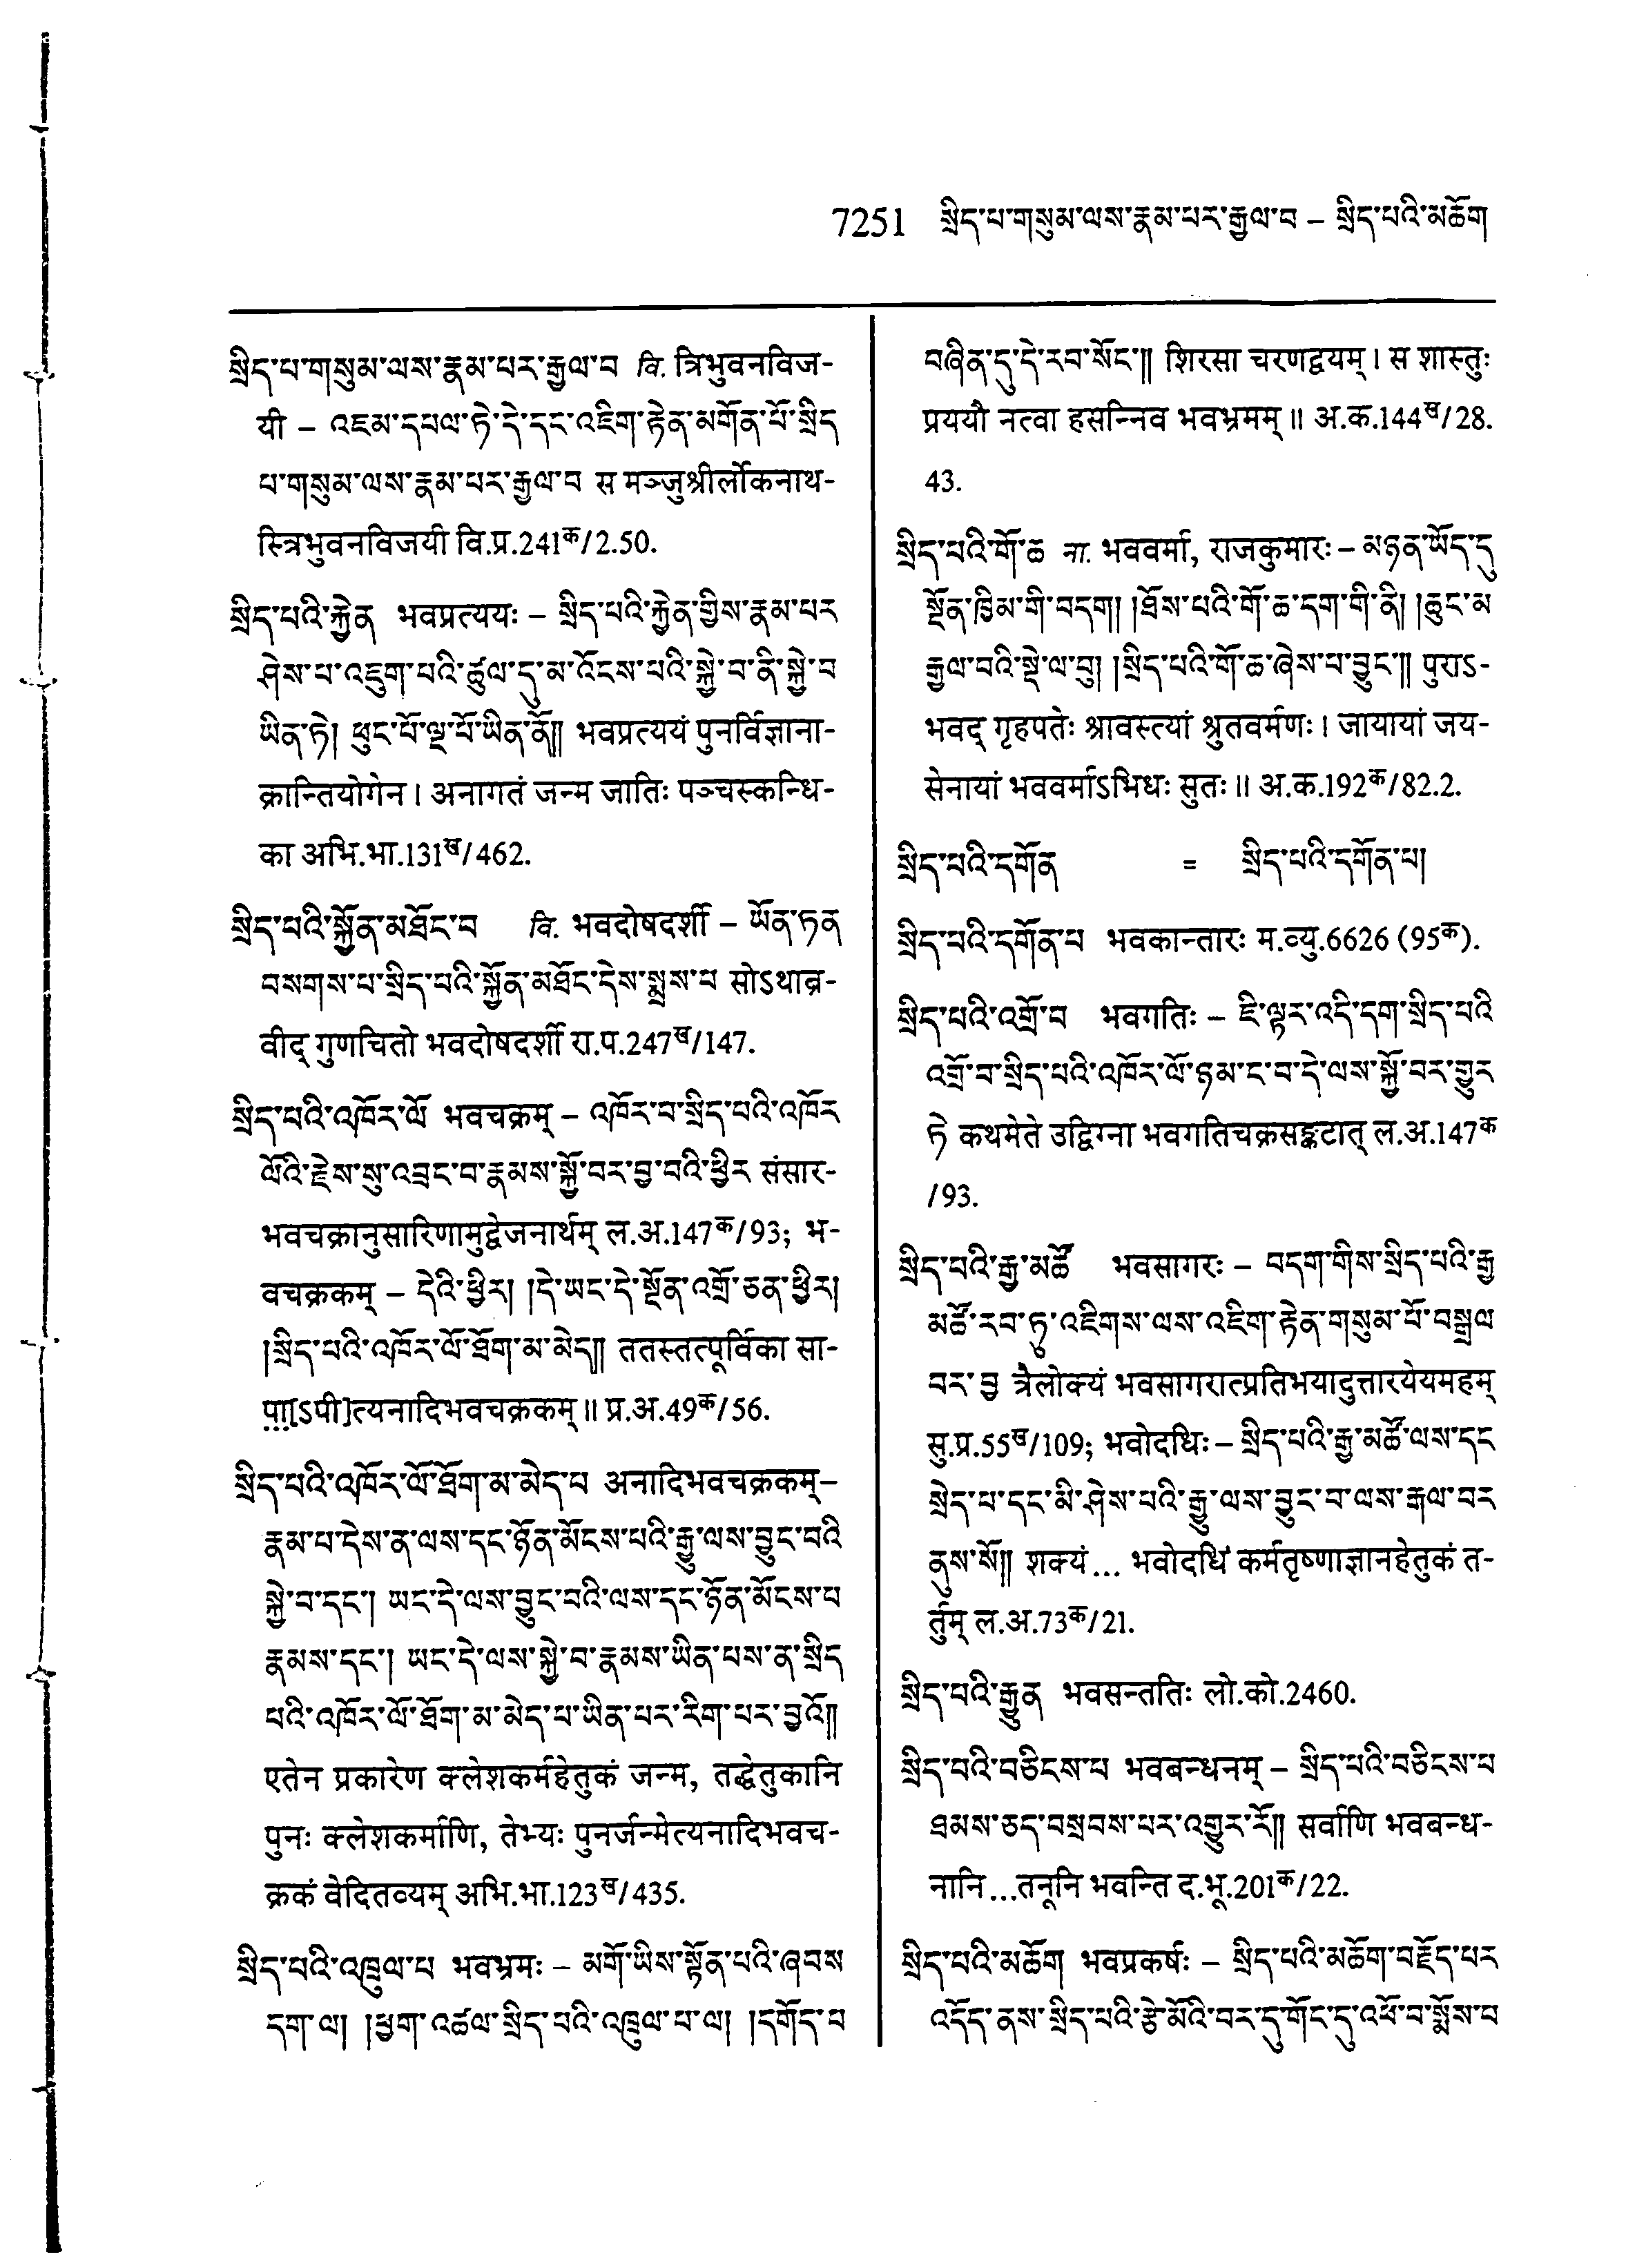 7251 སྲིད་པ་གསུམ་ལས་རྣམ་པར་རྒྱལ་བ – སྲིད་པའི་མཆོག
སྲིད་པ་གསུམ་ལས་རྣམ་པར་རྒྱལ་བ वि. त्रिभुवनविज-
यी – འཇམ་དཔལ་ཏེ་དེ་དང་འཇིག་རྟེན་མགོན་པོ་སྲིད
པ་གསུམ་ལས་རྣམ་པར་རྒྱལ་བ स मञ्जुश्रीर्लोकनाथ-
स्त्रिभुवनविजयी वि.प्र.241क/2.50.
སྲིད་པའི་རྐྱེན भवप्रत्ययः – སྲིད་པའི་རྐྱེན་གྱིས་རྣམ་པར
ཤེས་པ་འཇུག་པའི་ཚུལ་དུ་མ་འོངས་པའི་སྐྱེ་བ་ནི་སྐྱེ་བ
ཡིན་ཏེ། ཕུང་པོ་ལྔ་པོ་ཡིན་ནོ།། भवप्रत्ययं पुनर्विज्ञाना-
क्रान्तियोगेन । अनागतं जन्म जातिः पञ्चस्कन्धि-
का अभि.भा.131ख/462.
སྲིད་པའི་སྐྱོན་མཐོང་བ वि. भवदोषदर्शी – ཡོན་ཏན
བསགས་པ་སྲིད་པའི་སྐྱོན་མཐོང་དེས་སྨྲས་པ सोऽथाब्र-
वीद् गुणचितो भवदोषदर्शी रा.प.247ख/147.
སྲིད་པའི་འཁོར་ལོ भवचक्रम् – འཁོར་བ་སྲིད་པའི་འཁོར
ལོའི་རྗེས་སུ་འབྲང་བ་རྣམས་སྐྱོ་བར་བྱ་བའི་ཕྱིར संसार-
भवचक्रानुसारिणामुद्वेजनार्थम् ल.अ.147क/93; भ-
वचक्रकम् – དེའི་ཕྱིར། །དེ་ཡང་དེ་སྔོན་འགྲོ་ཅན་ཕྱིར།
།སྲིད་པའི་འཁོར་ལོ་ཐོག་མ་མེད།། ततस्तत्पूर्विका सा-
पा[ऽपी]त्यनादिभवचक्रकम् ॥ प्र.अ.49क/56.
སྲིད་པའི་འཁོར་ལོ་ཐོག་མ་མེད་པ अनादिभवचक्रकम्–
རྣམ་པ་དེས་ན་ལས་དང་ཉོན་མོངས་པའི་རྒྱུ་ལས་བྱུང་བའི
སྐྱེ་བ་དང་། ཡང་དེ་ལས་བྱུང་བའི་ལས་དང་ཉོན་མོངས་པ
རྣམས་དང་། ཡང་དེ་ལས་སྐྱེ་བ་རྣམས་ཡིན་པས་ན་སྲིད
པའི་འཁོར་ལོ་ཐོག་མ་མེད་པ་ཡིན་པར་རིག་པར་བྱའོ།།
एतेन प्रकारेण क्लेशकर्महेतुकं जन्म, तद्धेतुकानि
पुनः क्लेशकर्माणि, तेभ्यः पुनर्जन्मेत्यनादिभवच-
क्रकं वेदितव्यम् अभि.भा.123ख/435.
སྲིད་པའི་འཁྲུལ་པ भवभ्रमः – མགོ་ཡིས་སྟོན་པའི་ཞབས
དག་ལ། །ཕྱག་འཚལ་སྲིད་པའི་འཁྲུལ་པ་ལ། །དགོད་པ
བཞིན་དུ་དེ་རབ་སོང་།། शिरसा चरणद्वयम् । स शास्तुः
प्रययौ नत्वा हसन्निव भवभ्रमम् ॥ अ.क.144ख/28.
43.
སྲིད་པའི་གོ་ཆ ना. भववर्मा, राजकुमारः – མཉན་ཡོད་དུ
སྔོན་ཁྱིམ་གི་བདག། །ཐོས་པའི་གོ་ཆ་དག་གི་ནི། །ཆུང་མ
རྒྱལ་བའི་སྡེ་ལ་བུ། །སྲིད་པའི་གོ་ཆ་ཞེས་པ་བྱུང་།། पुराऽ-
भवद् गृहपतेः श्रावस्त्यां श्रुतवर्मणः । जायायां जय-
सेनायां भववर्माऽभिधः सुतः ॥ अ.क.192क/82.2.
སྲིད་པའི་དགོན = སྲིད་པའི་དགོན་པ།
སྲིད་པའི་དགོན་པ भवकान्तारः म.व्यु.6626 (95क).
སྲིད་པའི་འགྲོ་བ भवगतिः – ཇི་ལྟར་འདི་དག་སྲིད་པའི
འགྲོ་བ་སྲིད་པའི་འཁོར་ལོ་ཉམ་ང་བ་དེ་ལས་སྐྱོ་བར་གྱུར
ཏེ कथमेते उद्विग्ना भवगतिचक्रसङ्कटात् ल.अ.147क
/93.
སྲིད་པའི་རྒྱ་མཚོ भवसागरः – བདག་གིས་སྲིད་པའི་རྒྱ
མཚོ་རབ་ཏུ་འཇིགས་ལས་འཇིག་རྟེན་གསུམ་པོ་བསྒྲལ
བར་བྱ त्रैलोक्यं भवसागरात्प्रतिभयादुत्तारयेयमहम्
सु.प्र.55ख/109; भवोदधिः – སྲིད་པའི་རྒྱ་མཚོ་ལས་དང
སྲེད་པ་དང་མི་ཤེས་པའི་རྒྱུ་ལས་བྱུང་བ་ལས་རྒལ་བར
ནུས་སོ།། शक्यं... भवोदधिं कर्मतृष्णाज्ञानहेतुकं त-
र्तुम् ल.अ.73क/21.
སྲིད་པའི་རྒྱུན भवसन्ततिः लो.को.2460.
སྲིད་པའི་བཅིངས་པ भवबन्धनम् – སྲིད་པའི་བཅིངས་པ
ཐམས་ཅད་བསྲབས་པར་འགྱུར་རོ།། सर्वाणि भवबन्ध-
नानि ...तनूनि भवन्ति द.भू.201क/22.
སྲིད་པའི་མཆོག भवप्रकर्षः – སྲིད་པའི་མཆོག་བརྗོད་པར
འདོད་ནས་སྲིད་པའི་རྩེ་མོའི་བར་དུ་གོང་དུ་འཕོ་བ་སྨོས་པ